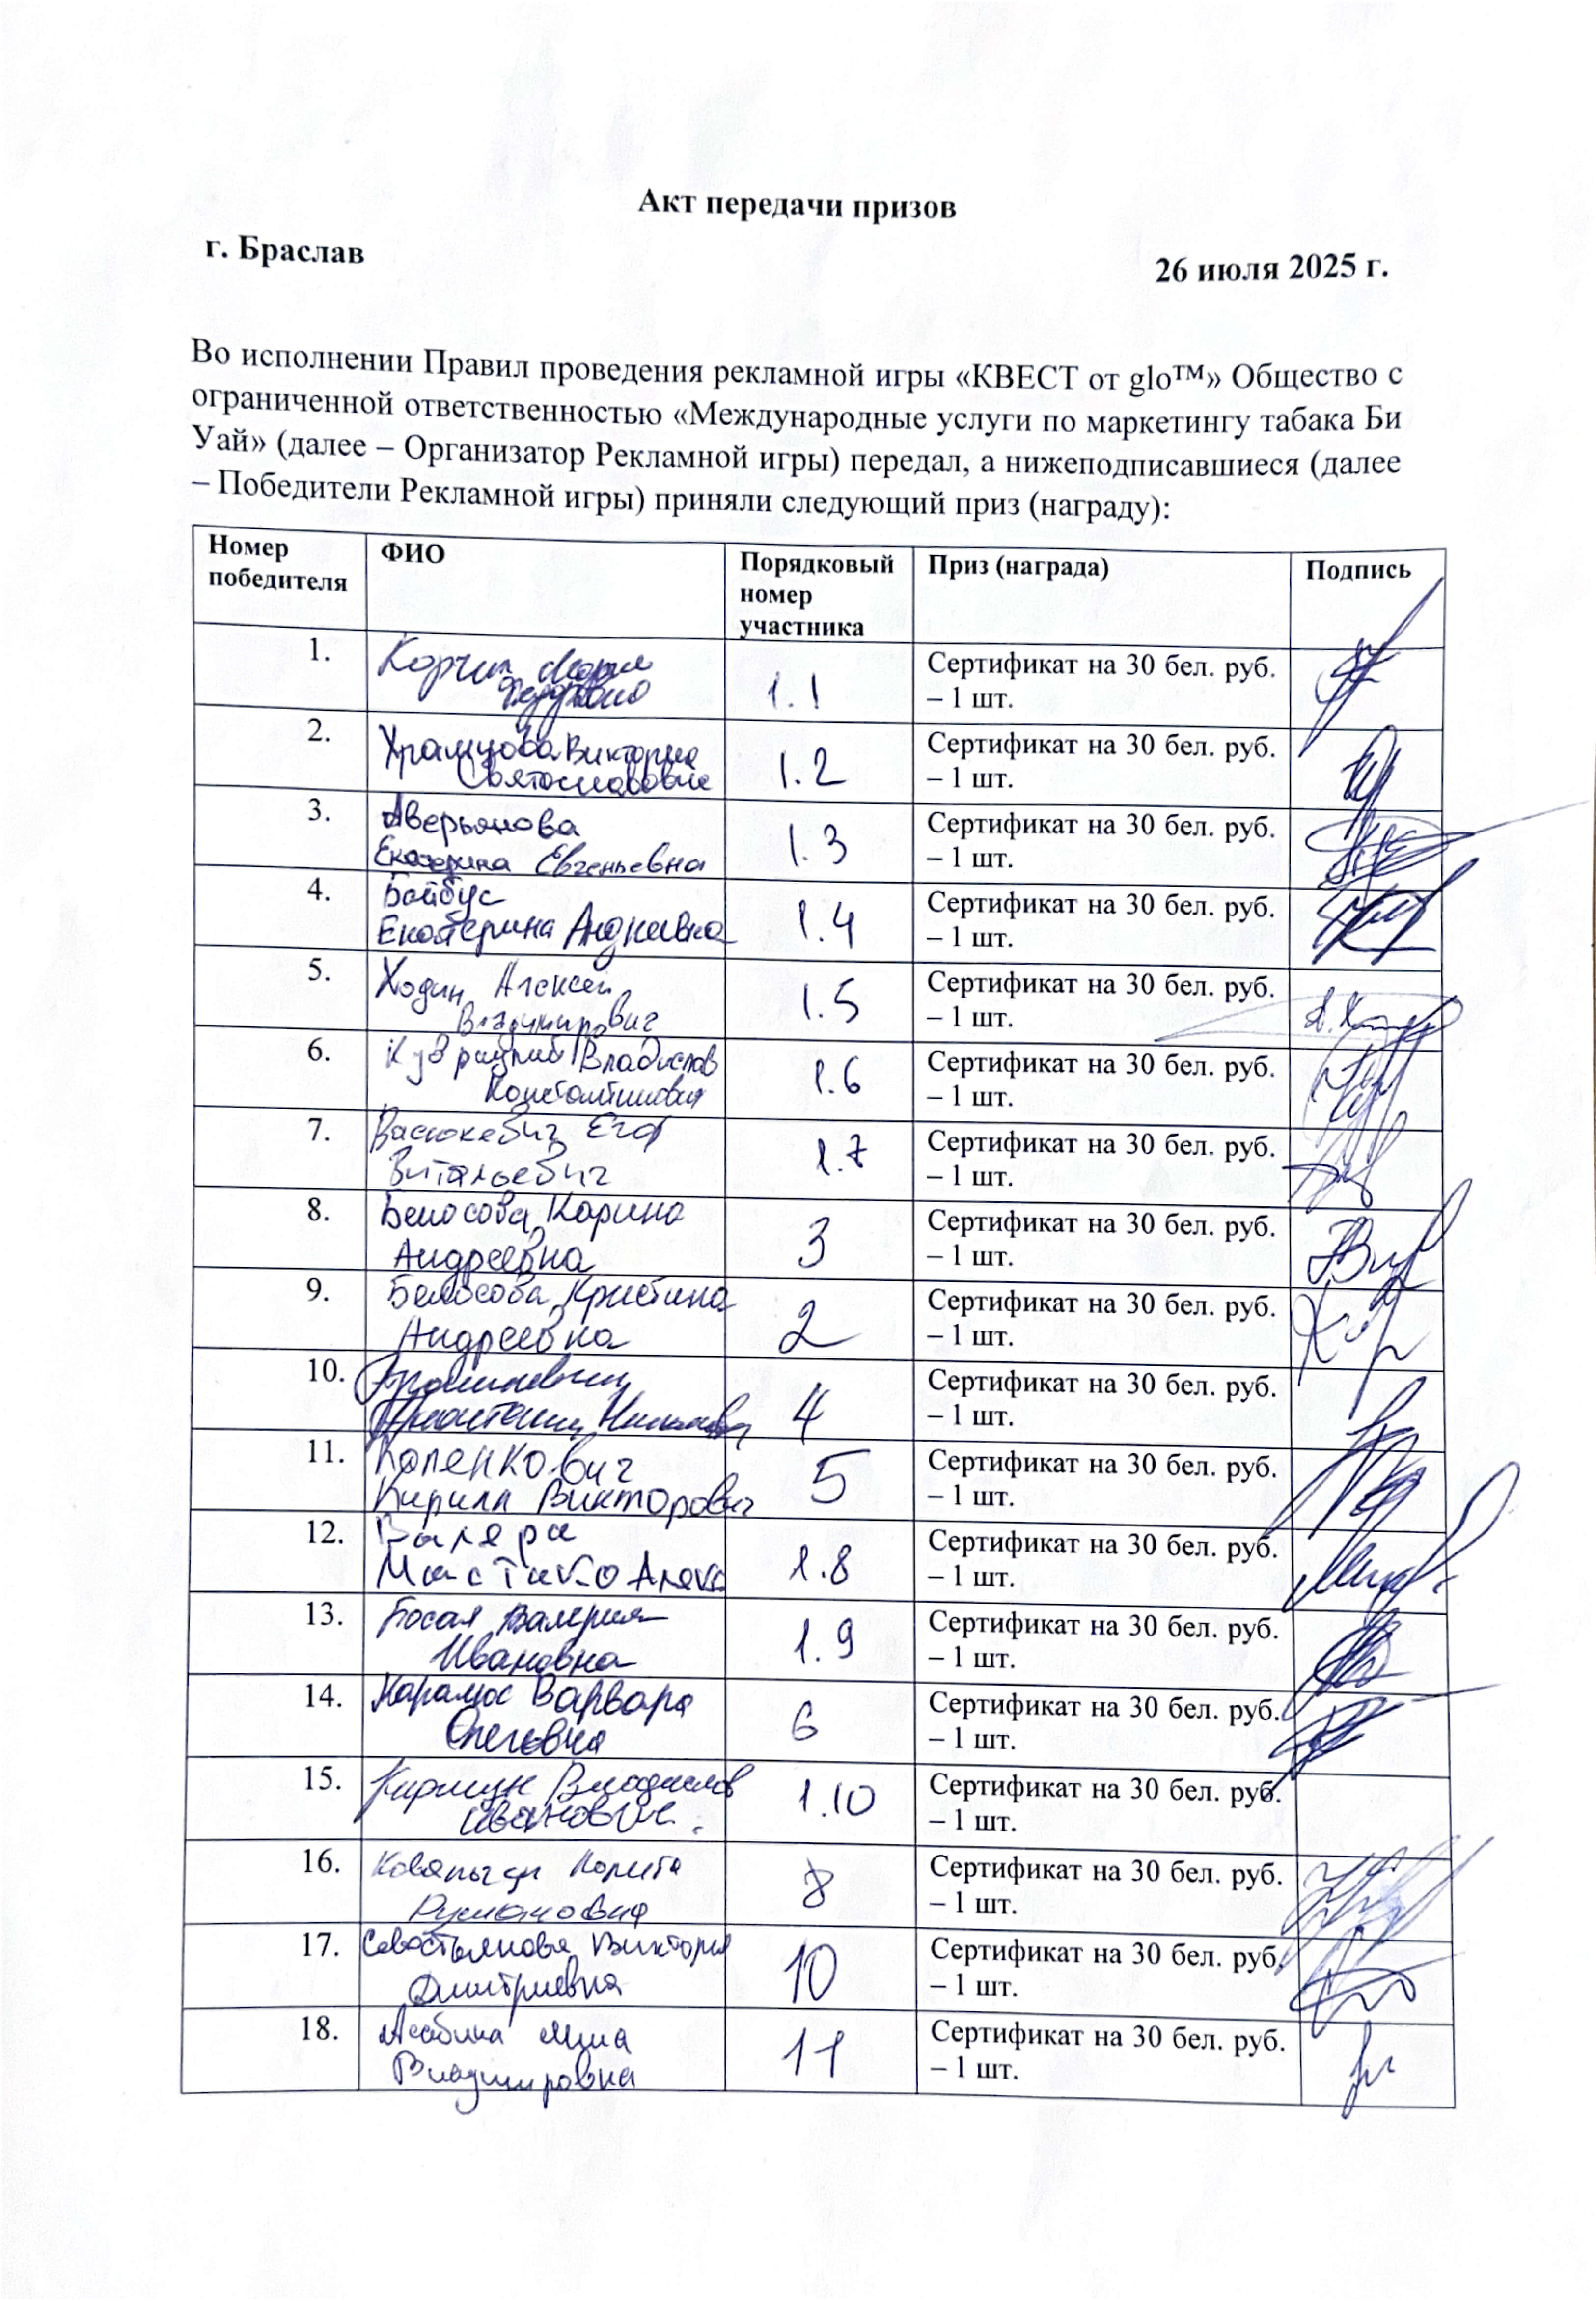 Акт передачи призов
г. Браслав
26 июля 2025 г.
Во исполнении Правил проведения рекламной игры «КВЕСТ от glo™» Общество с
ограниченной ответственностью «Международные услуги по маркетингу табака Би
Уай» (далее – Организатор Рекламной игры) передал, а нижеподписавшиеся (далее
– Победители Рекламной игры) приняли следующий приз (награду):
Номер
победителя
ФИО
Порядковый
номер
участника
Приз (награда)
Подпись
1.
1.1
Сертификат на 30 бел. руб.
– 1 шт.
2.
Храмцова Виктория
Святославовна
1.2
Сертификат на 30 бел. руб.
– 1 шт.
3.
Аверьянова
Екатерина Евгеньевна
1.3
Сертификат на 30 бел. руб.
– 1 шт.
4.
Байбус
Екатерина
1.4
Сертификат на 30 бел. руб.
– 1 шт.
5.
Ходин Алексей
Владимирович
1.5
Сертификат на 30 бел. руб.
– 1 шт.
6.
Владислав
Константинович
1.6
Сертификат на 30 бел. руб.
– 1 шт.
7.
Васюкевич Егор
Витальевич
1.7
Сертификат на 30 бел. руб.
– 1 шт.
8.
Белосова Карина
Андреевна
3
Сертификат на 30 бел. руб.
– 1 шт.
9.
Белосова Кристина
Андреевна
2
Сертификат на 30 бел. руб.
– 1 шт.
10.
4
Сертификат на 30 бел. руб.
– 1 шт.
11.
Каленкович
Кирилл Викторович
5
Сертификат на 30 бел. руб.
– 1 шт.
12.
Валера
1.8
Сертификат на 30 бел. руб.
– 1 шт.
13.
Босая Валерия
Ивановна
1.9
Сертификат на 30 бел. руб.
– 1 шт.
14.
Варвара
Олеговна
6
Сертификат на 30 бел. руб.
– 1 шт.
15.
Владислав
Иванович
1.10
Сертификат на 30 бел. руб.
– 1 шт.
16.
8
Сертификат на 30 бел. руб.
– 1 шт.
17.
Севостьянова Виктория
Дмитриевна
10
Сертификат на 30 бел. руб.
– 1 шт.
18.
Владимировна
11
Сертификат на 30 бел. руб.
– 1 шт.